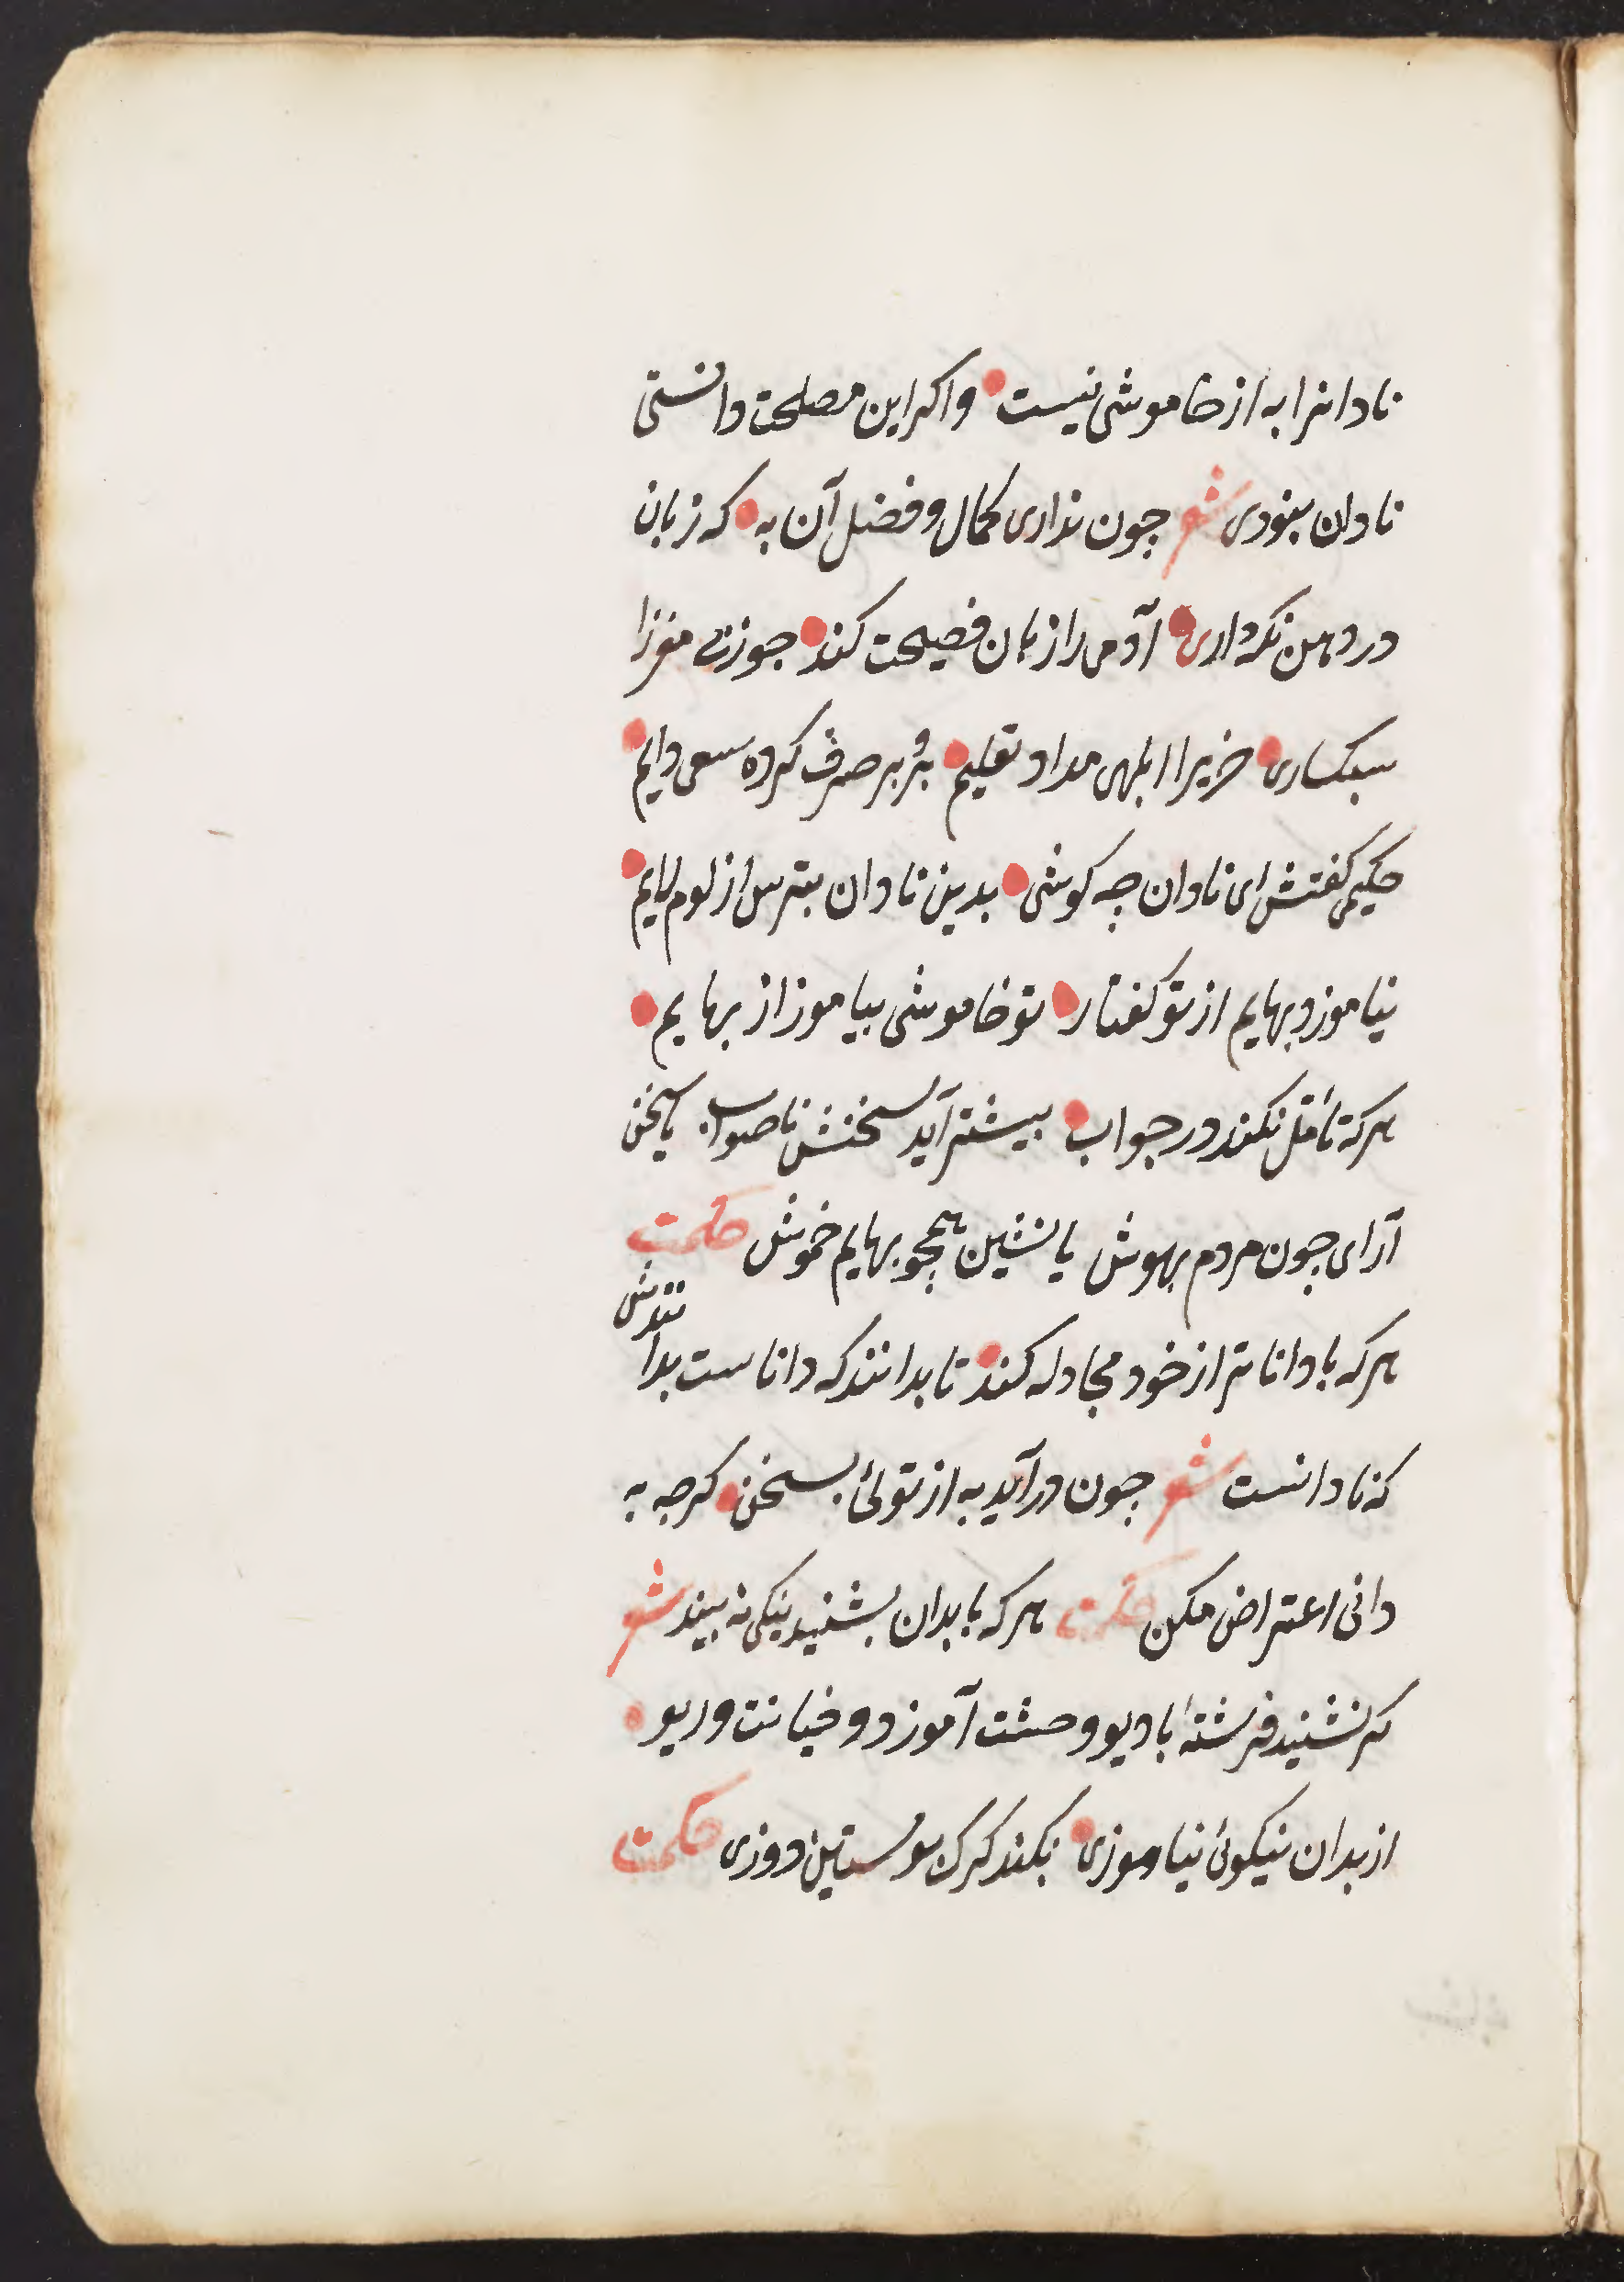 نادانرا به از خاموشی نیست واکر این مصلحت دانستی
نادان نبودی شعر چون نداری کمال و فضل آن به که زبان
در دهن نکه داری آدمی را زبان فضیحت کند جوز بی مغزرا
سبکساری خریرا ابلهی میداد تعلیم برو بر صرف کرده سعی دایم
حکیمی کفتش ای نادان چه کوشی بدین نادان بترس از لوم لایم
نیاموزد بهایم از تو کفتار تو خاموشی بیاموز از بهایم
هرکه تأمل نکند در جواب بیشتر آید سخنش ناصواب یا سخن
آرای چون مردم بهوش یا نشین همچو بهایم خموش حکمت
هرکه با داناتر از خود مجادله کند تا بدانند که داناست بدانندش
که نادانست شعر چون درآید به از توئی بسخن کرچه به
دانی اعتراض مکن حکمت هرکه با بدان بشنید نیکی نه بیند شعر
کر نشنید فرشته با دیو وحشت آموزد و خیانت و ریو
از بدان نیکوئی نیاموزی نکند کرک پوستین دوزی حکمت